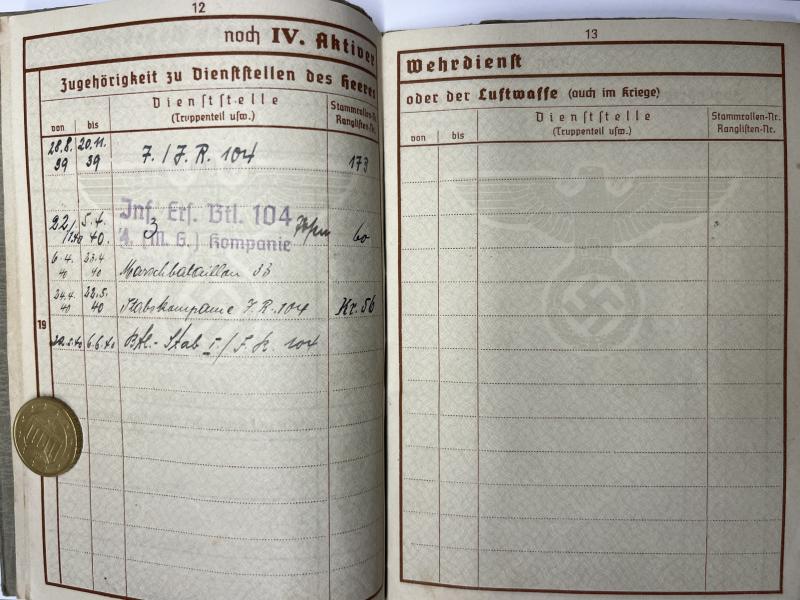 12
noch IV. Aktiver
Zugehörigkeit zu Dienststellen des Heeres
von bis
Dienststelle
(Truppenteil usw.)
Stammrollen-Nr.
Ranglisten-Nr.
28.8. 20.11.
39 39
7./J.R. 104
173
Inf. Ers. Btl. 104
3
4. (M. G.) Kompanie
60
5.4.
40.
6.4. 23.4
40 40
Marschbataillon 33
24.4. 22.5.
40 40
Stabskompanie J.R. 104
Kr. 56
19
6.6.40
Btl.-Stab I./J.R. 104
13
Wehrdienst
oder der Luftwaffe (auch im Kriege)
von bis
Dienststelle
(Truppenteil usw.)
Stammrollen-Nr.
Ranglisten-Nr.